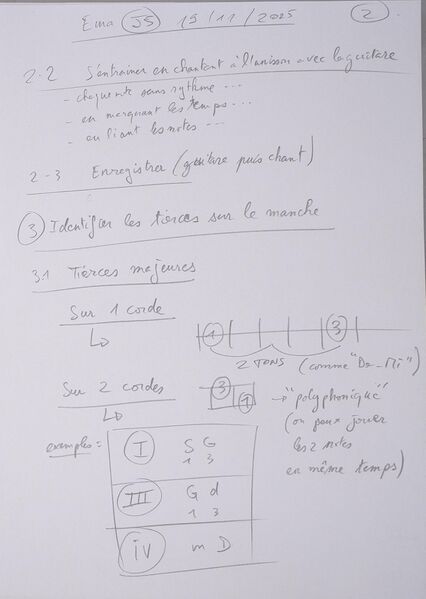 Ema J5 15/11/2025 2
2-2 S'entrainer en chantant à l'unisson avec la guitare
- chaque note sans rythme ...
- en marquant les temps ...
- en liant les notes ...
2-3 Enregistrer (guitare puis chant)
3 Identifier les tierces sur le manche
3.1 Tierces majeures
Sur 1 corde
1 3
2 TONS (comme "Do-Mi")
Sur 2 cordes
3
1
→ "polyphonique"
(on peux jouer
les 2 notes
en même temps)
exemples:
I S G
1 3
III G d
1 3
IV m D